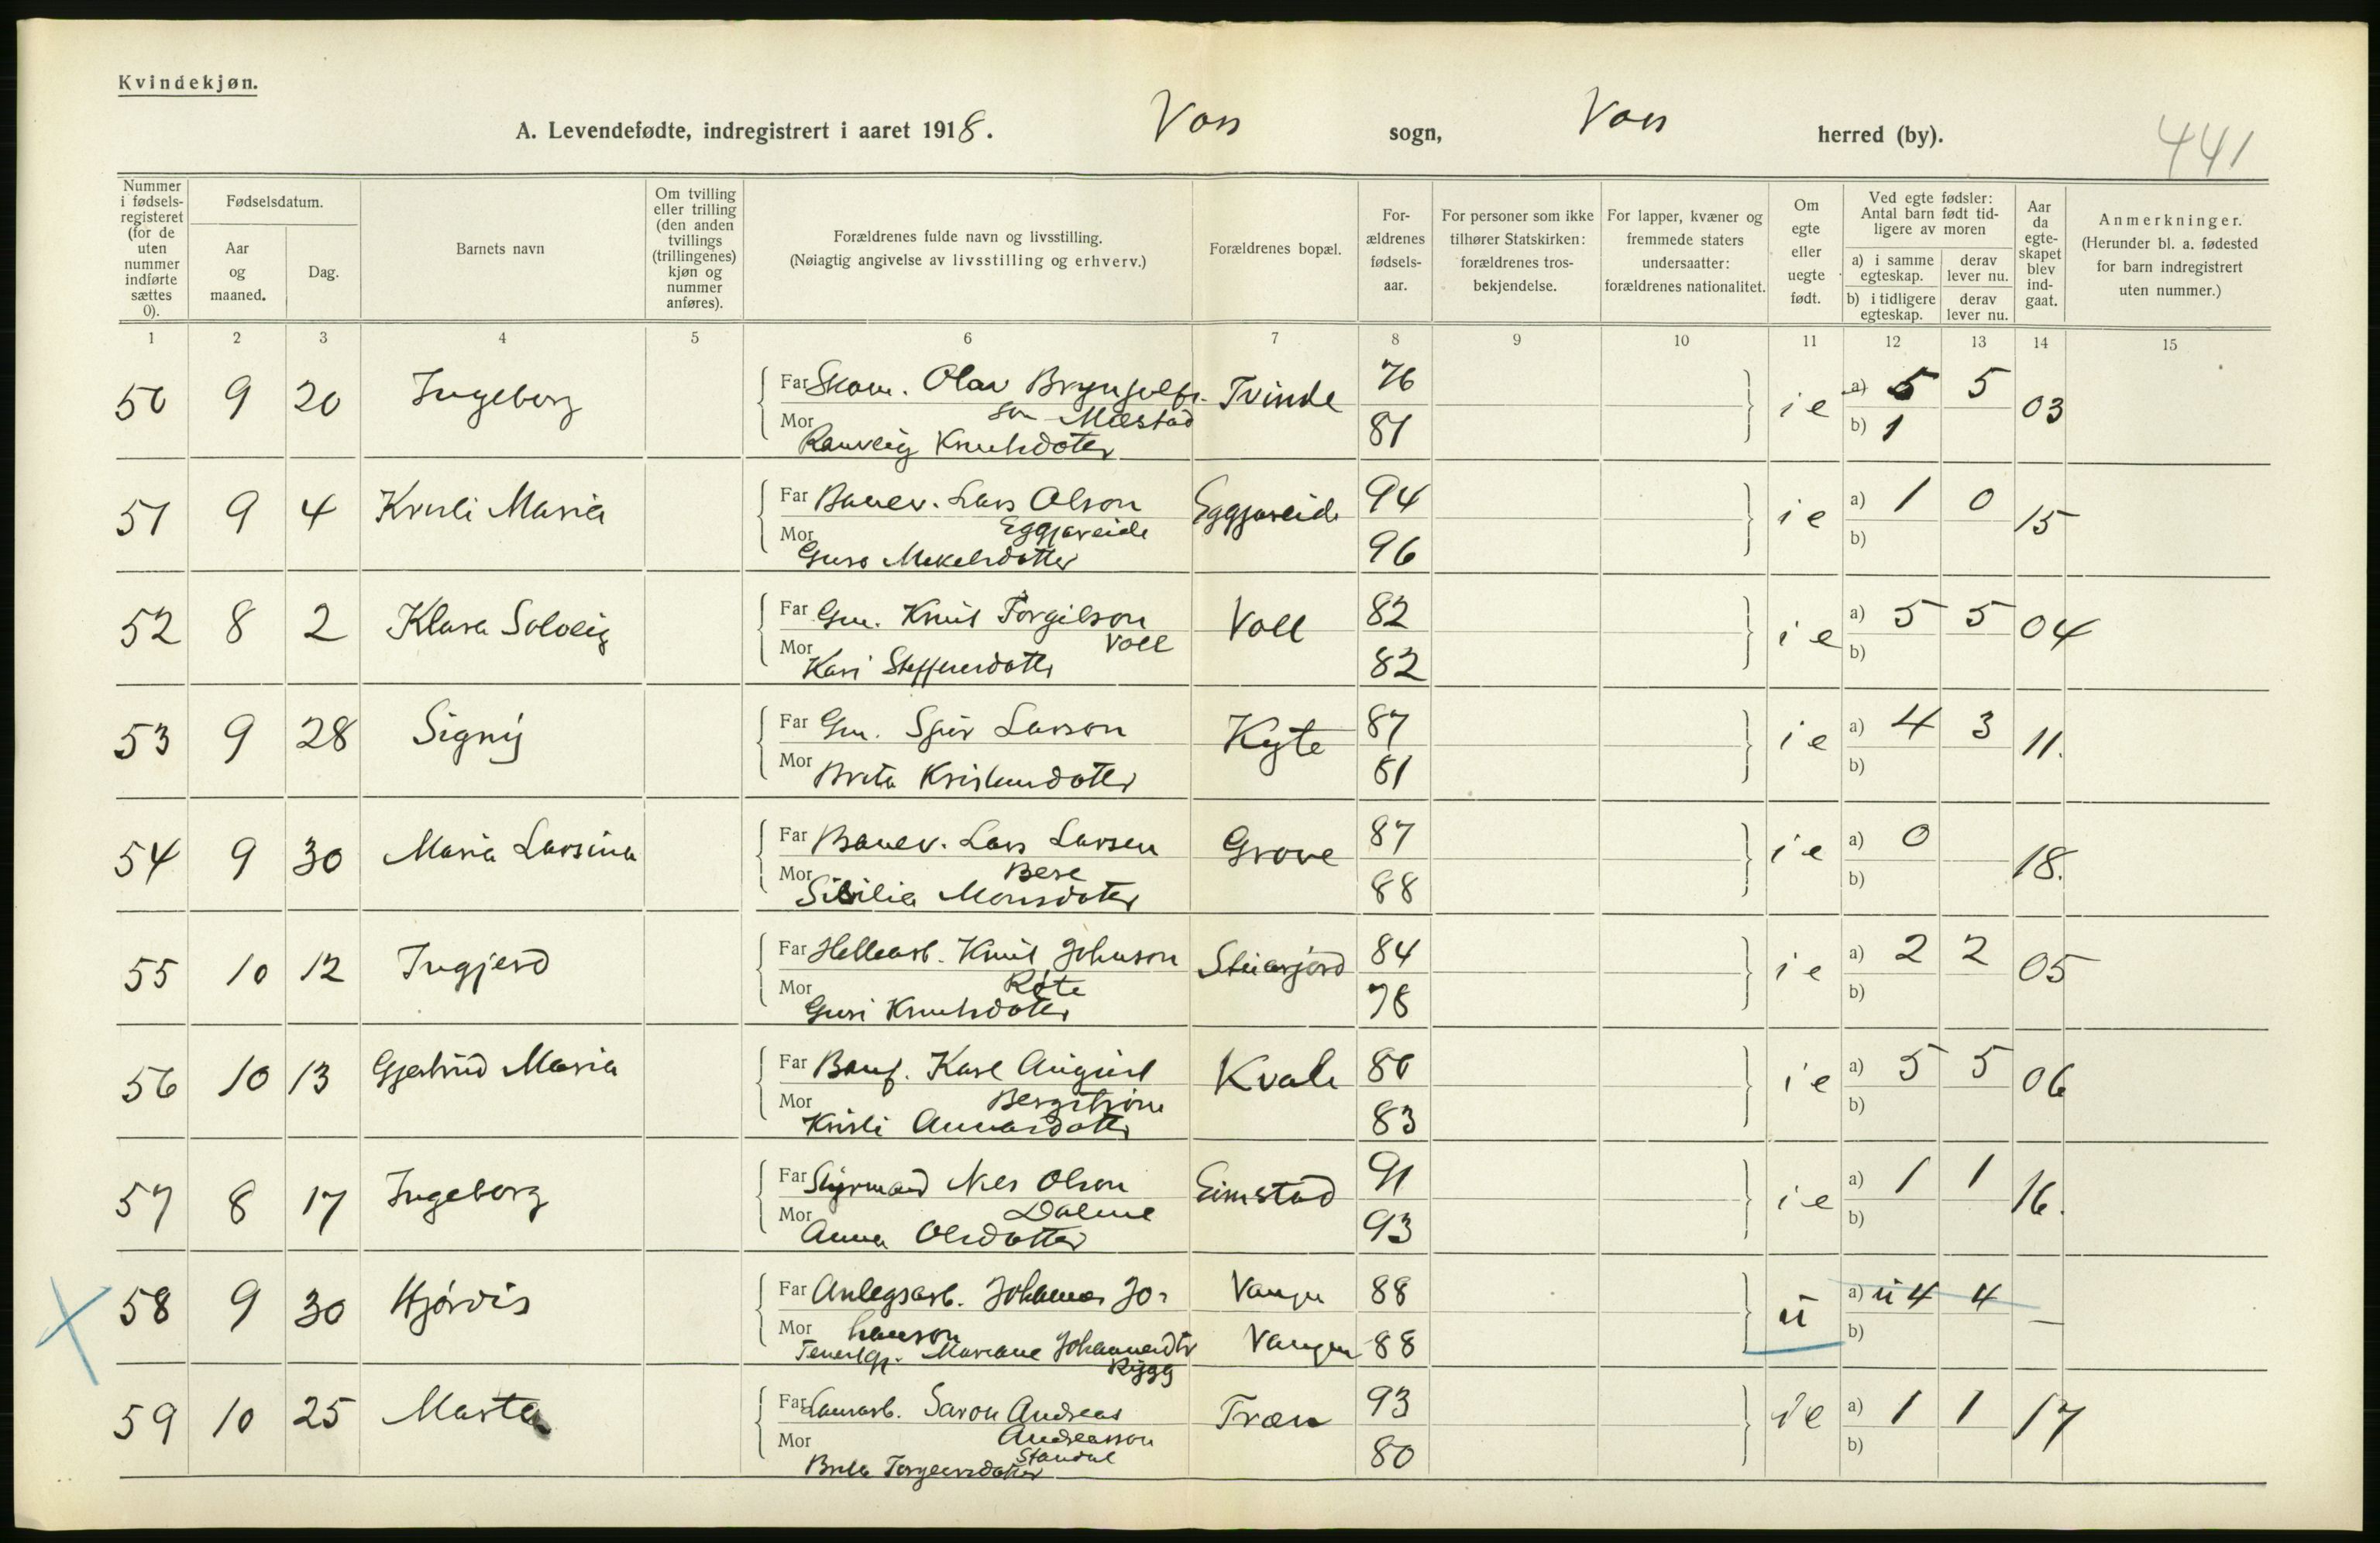 Kvindekjøn.
A. Levendefødte, indregistrert i aaret 1918. Voss sogn, Voss herred (by).
441
Nummer i fødsels-registeret (for de uten nummer indførte sættes 0).
Fødselsdatum.
Aar og maaned.
Dag.
Barnets navn
Om tvilling eller trilling (den anden tvillings (trillingenes) kjøn og nummer anføres).
Forældrenes fulde navn og livsstilling.
(Nøiagtig angivelse av livsstilling og erhverv.)
Forældrenes bopæl.
For-ældrenes fødsels-aar.
For personer som ikke tilhører Statskirken: forældrenes tros-bekjendelse.
For lapper, kvæner og fremmede staters undersaatter: forældrenes nationalitet.
Om egte eller uegte født.
Ved egte fødsler: Antal barn født tid-ligere av moren
a) i samme egteskap.
derav lever nu.
b) i tidligere egteskap.
derav lever nu.
Aar da egte-skapet blev ind-gaat.
Anmerkninger.
(Herunder bl. a. fødested for barn indregistrert uten nummer.)
1 2 3 4 5 6 7 8 9 10 11 12 13 14 15
50 9 20 Ingeborg Far Skom. Olav Brynjulfs- Tvinde 76 i e a) 5 5 03
son Mæstad
Mor Ranveig Knutsdotter 81 b) 1
51 9 4 Kristi Maria Far Banev. Lars Olson Eggjareid 94 i e a) 1 0 15
Eggjareide
Mor Guro Mikelsdotter 96 b)
52 8 2 Klara Solveig Far Gm. Knut Torgilson Voll 82 i e a) 5 5 04
Voll
Mor Kari Steffensdotter 82 b)
53 9 28 Signy Far Gm. Sjur Larson Kyte 87 i e a) 4 3 11.
Mor Brita Kristendotter 81 b)
54 9 30 Maria Larsina Far Banev. Lars Larsen Grove 87 i e a) 0 18.
Mor Sisilia Monsdotter 88 b)
55 10 12 Ingjerd Far Hellearb. Knut Johnson 84 i e a) 2 2 05
Røte
Mor Guri Knutsdotter 78 b)
56 10 13 Gjertrud Maria Far Banf. Karl August Kvale 80 i e a) 5 5 06
Bergstrøm
Mor Kristi Annasdotter 83 b)
57 8 17 Ingeborg Far Styrmand Nils Olson Eimstad 91 i e a) 1 1 16.
Mor Anna Olsdotter 93 b)
58 9 30 Hjørdis Far Anlegsarb. Johannes Jo- Vangen 88 u a) u 4 4 —
hanson
Mor Mariane Johannesdtr Vangen 88 b)
Rygg
59 10 25 Marta Far Andreas Træn 93 i e a) 1 1 17
Andreasson
Standal
Mor Brita Torgeirsdotter 80 b)